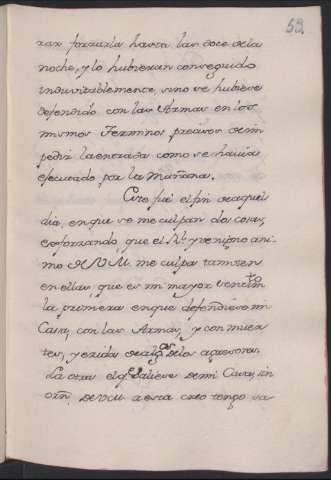 53
rar forzarla hasta las doce de la
noche, y lo hubieran conseguido
induvitablemente, si no se hubiese
defendido con las Armas en los
mismos Terminos precisos de im
pedir la entrada como se havia
efecutado por la Mañana.
Este fué el fin de aquel
dia, en que se me culpan dos cosas,
esforzando, que el Rl. y venigno ani
mo de V.M. me culpa tambien
en ellas, que es mi mayor sentim.to
la primera en que defendiese mi
Casa, con las Armas, y con muer
tes, y eridas de alg.os de los agresores.
La otra el q.e saliese de mi Casa, sin
orn. de V.M. a esta creo tengo sa